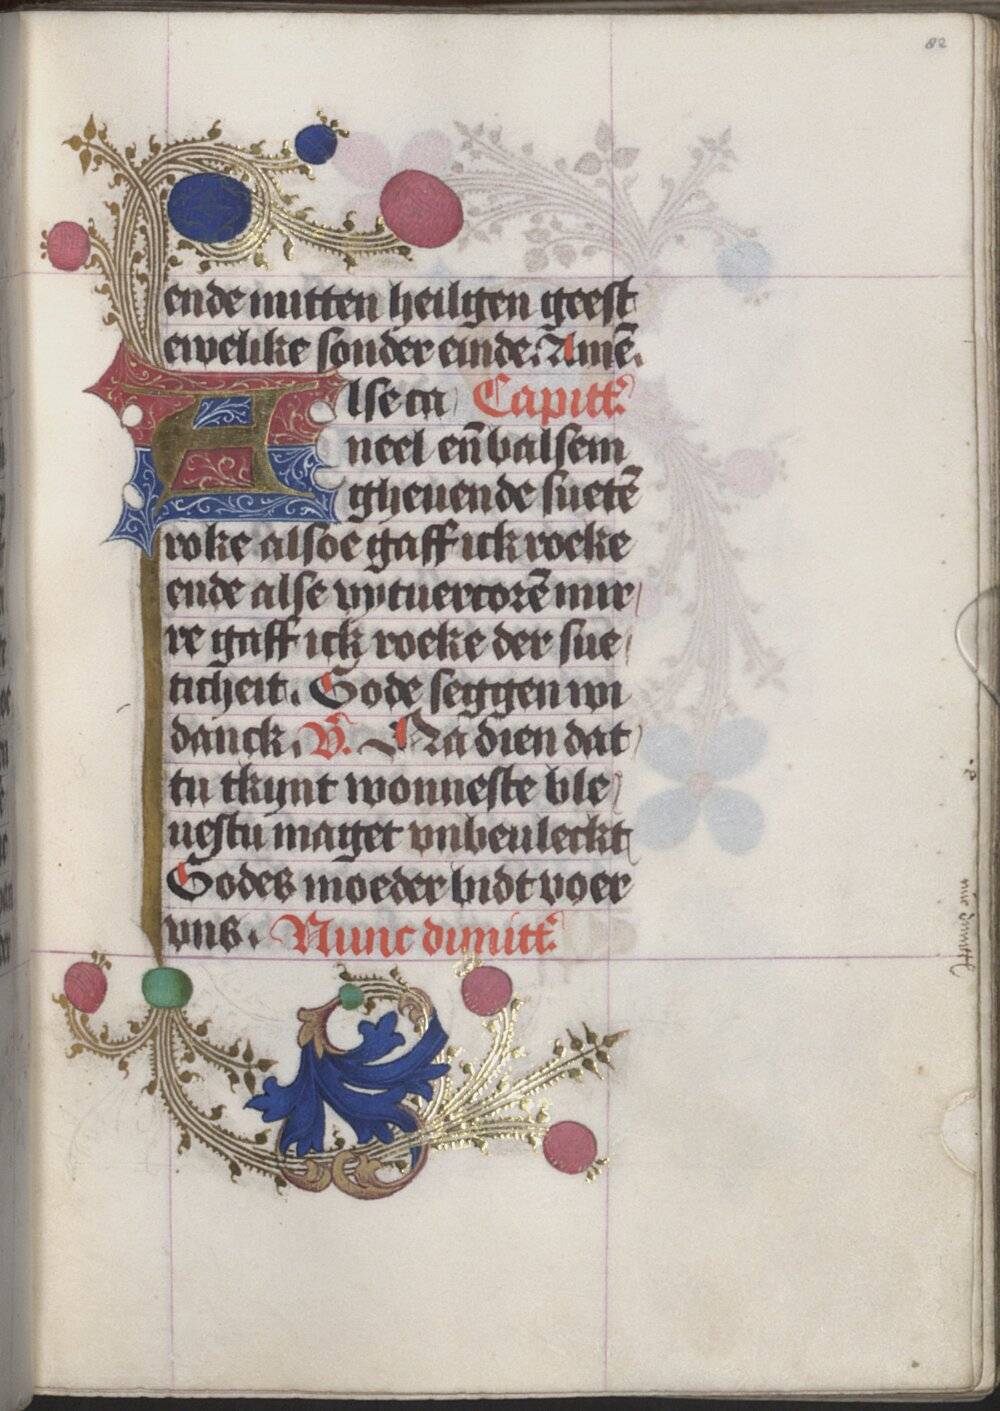 82
ende mitten heiligen geest
ewelike sonder einde. Amē.
Alse ca Capittꝭ
neel en̄ balsem
gheuende suetē
roke alsoe gaff ick roeke
ende alse vytuercorē mir
re gaff ick roeke der sue
ticheit. Gode seggen wi
danck. V. Na dien dat
tu tkynt wonneste ble
uestu maget vnbeuleckt
Godes moeder bidt voer
vns. Nunc dimittꝭ